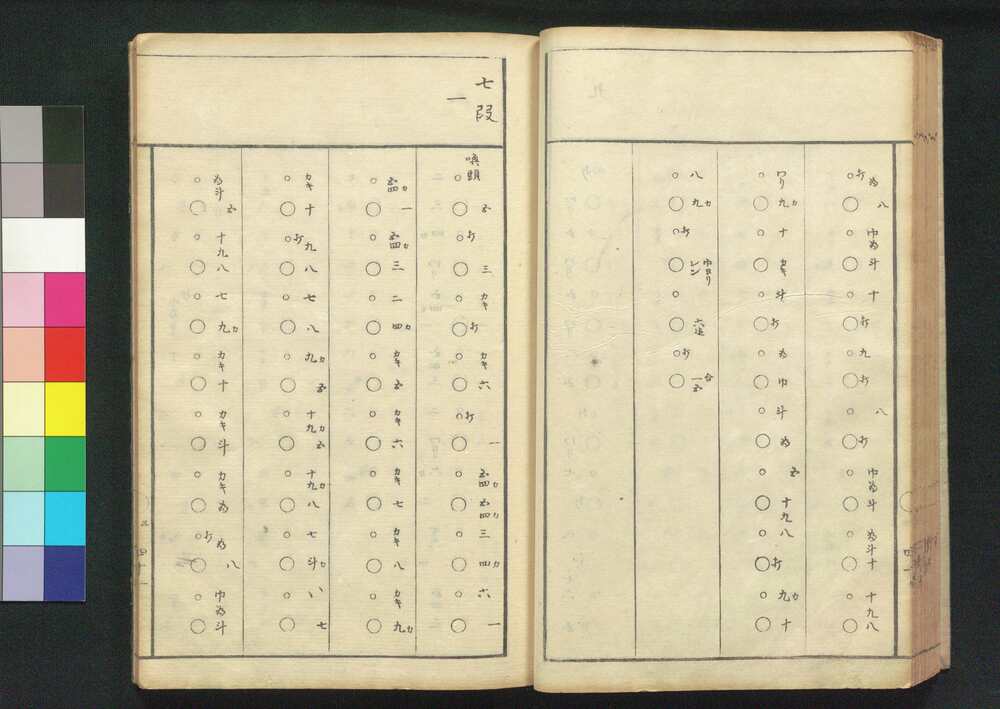 為ヲ 八 巾為 斗 十 ヲ 九 ヲ 八 ヲ 巾為 斗 為斗 十 十九 八
ワリ 九カ 十 カキ 斗 ヲ 為 巾 斗 為 五 十九 八 ヲ 九カ 十
八 九カ ヲ 巾ヨリ レン 六迄 ヲ 合 一五
七段
一
喚頭 五 ヲ 三 カキ ヲ カキ 六 ヲ 一 五四カ 五四カ 三 四カ 六 一
五四カ 一 五四カ 三 二 四カ カキ 五 カキ 六 カキ 七 カキ 八 カキ 九カ
カキ 十 ヲ 九 八 七 八 九カ 五 十九カ 五 十九カ 八 七 斗カ 七
為斗 五 十九八 七 九カ カキ 十 カキ 斗 カキ 為 ヲ 為 八 巾為斗